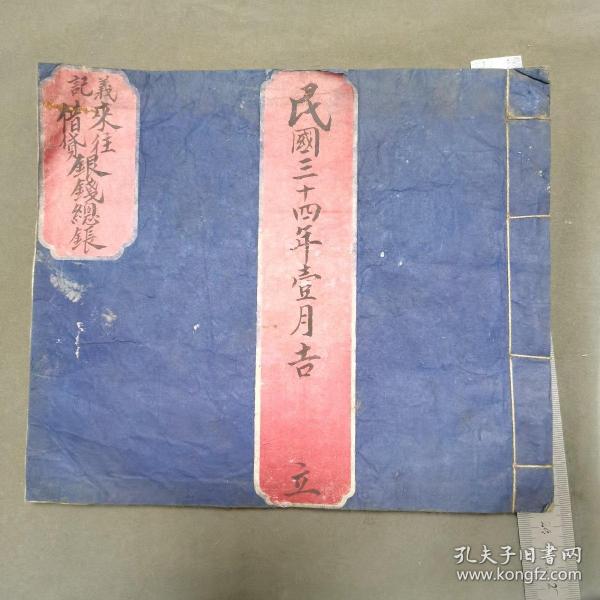 民國三十四年壹月吉 立
義記
來往
借貸
銀錢總賬
孔夫子旧书网
www.kongfz.com